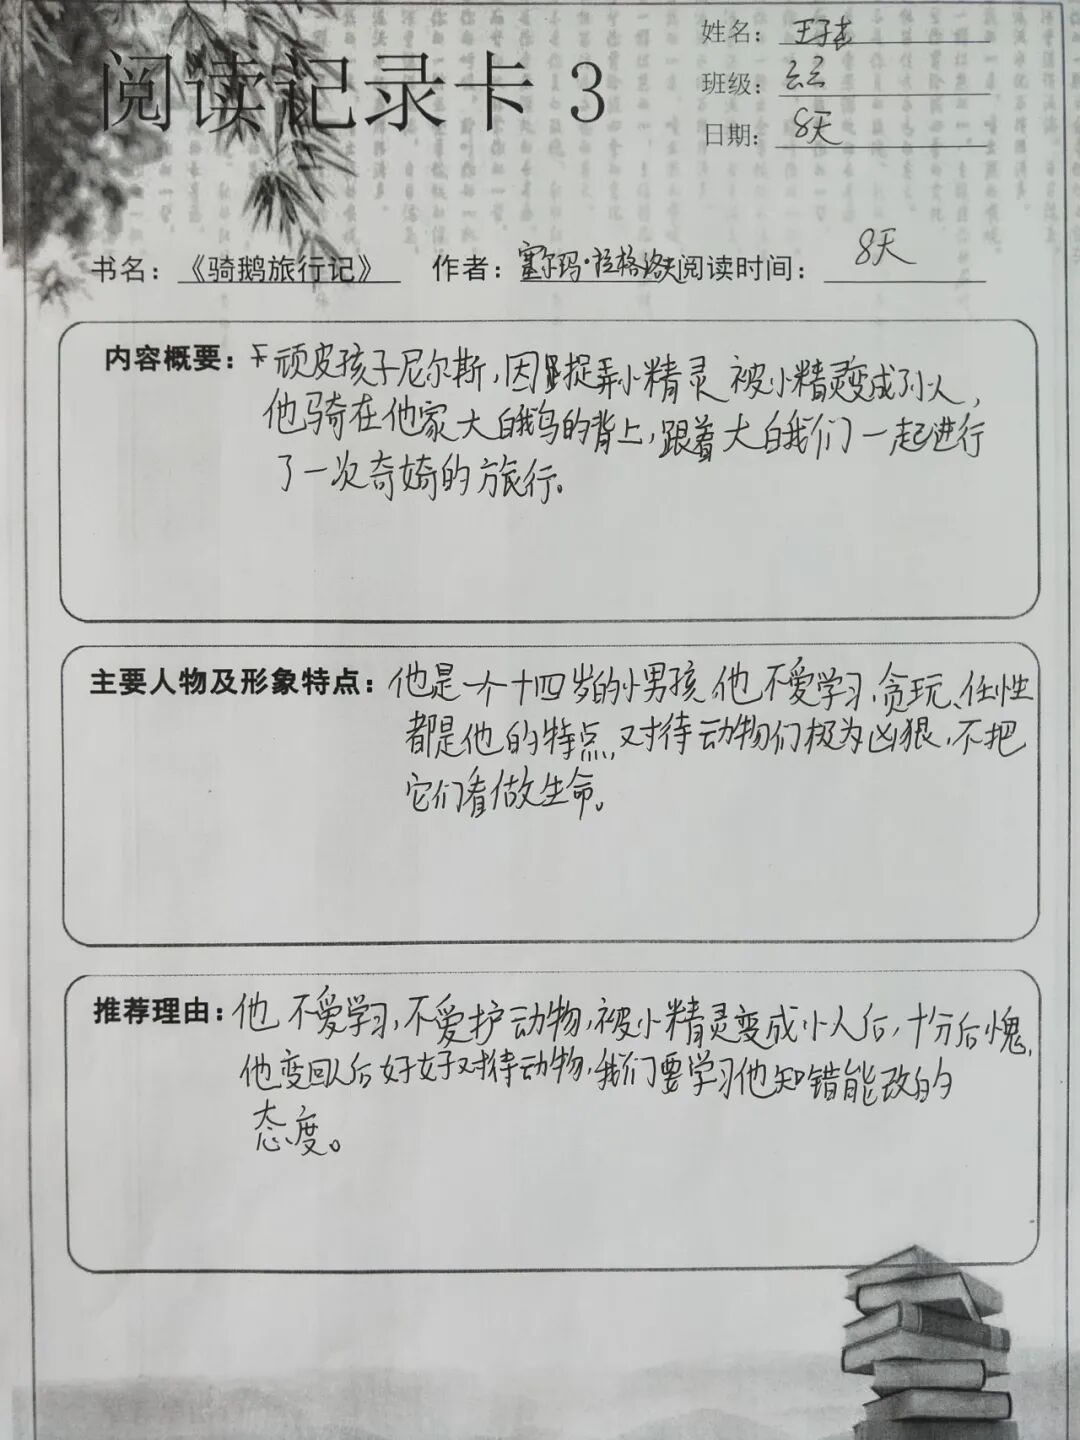 阅读记录卡 3
姓名：
班级：
日期：8天
书名：《骑鹅旅行记》 作者：塞尔玛·拉格洛夫 阅读时间：8天
内容概要：顽皮孩子尼尔斯，因捉弄小精灵 被小精灵变成了小人，
他骑在他家大白鹅的背上，跟着大白鹅们一起进行
了一次奇婍的旅行。
主要人物及形象特点：他是一个十四岁的小男孩，他不爱学习，贪玩、任性
都是他的特点，对待动物们极为凶狠，不把
它们看做生命。
推荐理由：他不爱学习，不爱护动物，被小精灵变成小人后，十分后愧，
他变回人后好好对待动物，我们要学习他知错能改的
态度。